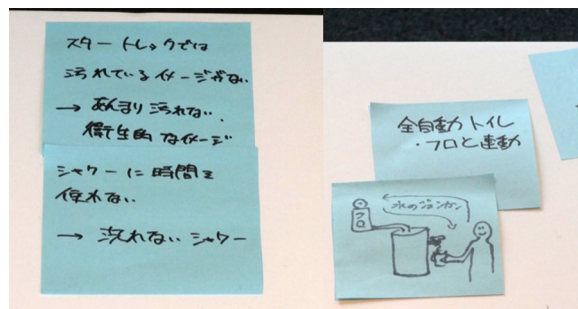 スタートレックでは
汚れているイメージがない
→ あんまり汚れない.
衛生的なイメージ
シャワーに時間を
使れない
→ 洗れない シャワー
全自動トイレ
・フロと連動
水のジュンカン
フロ